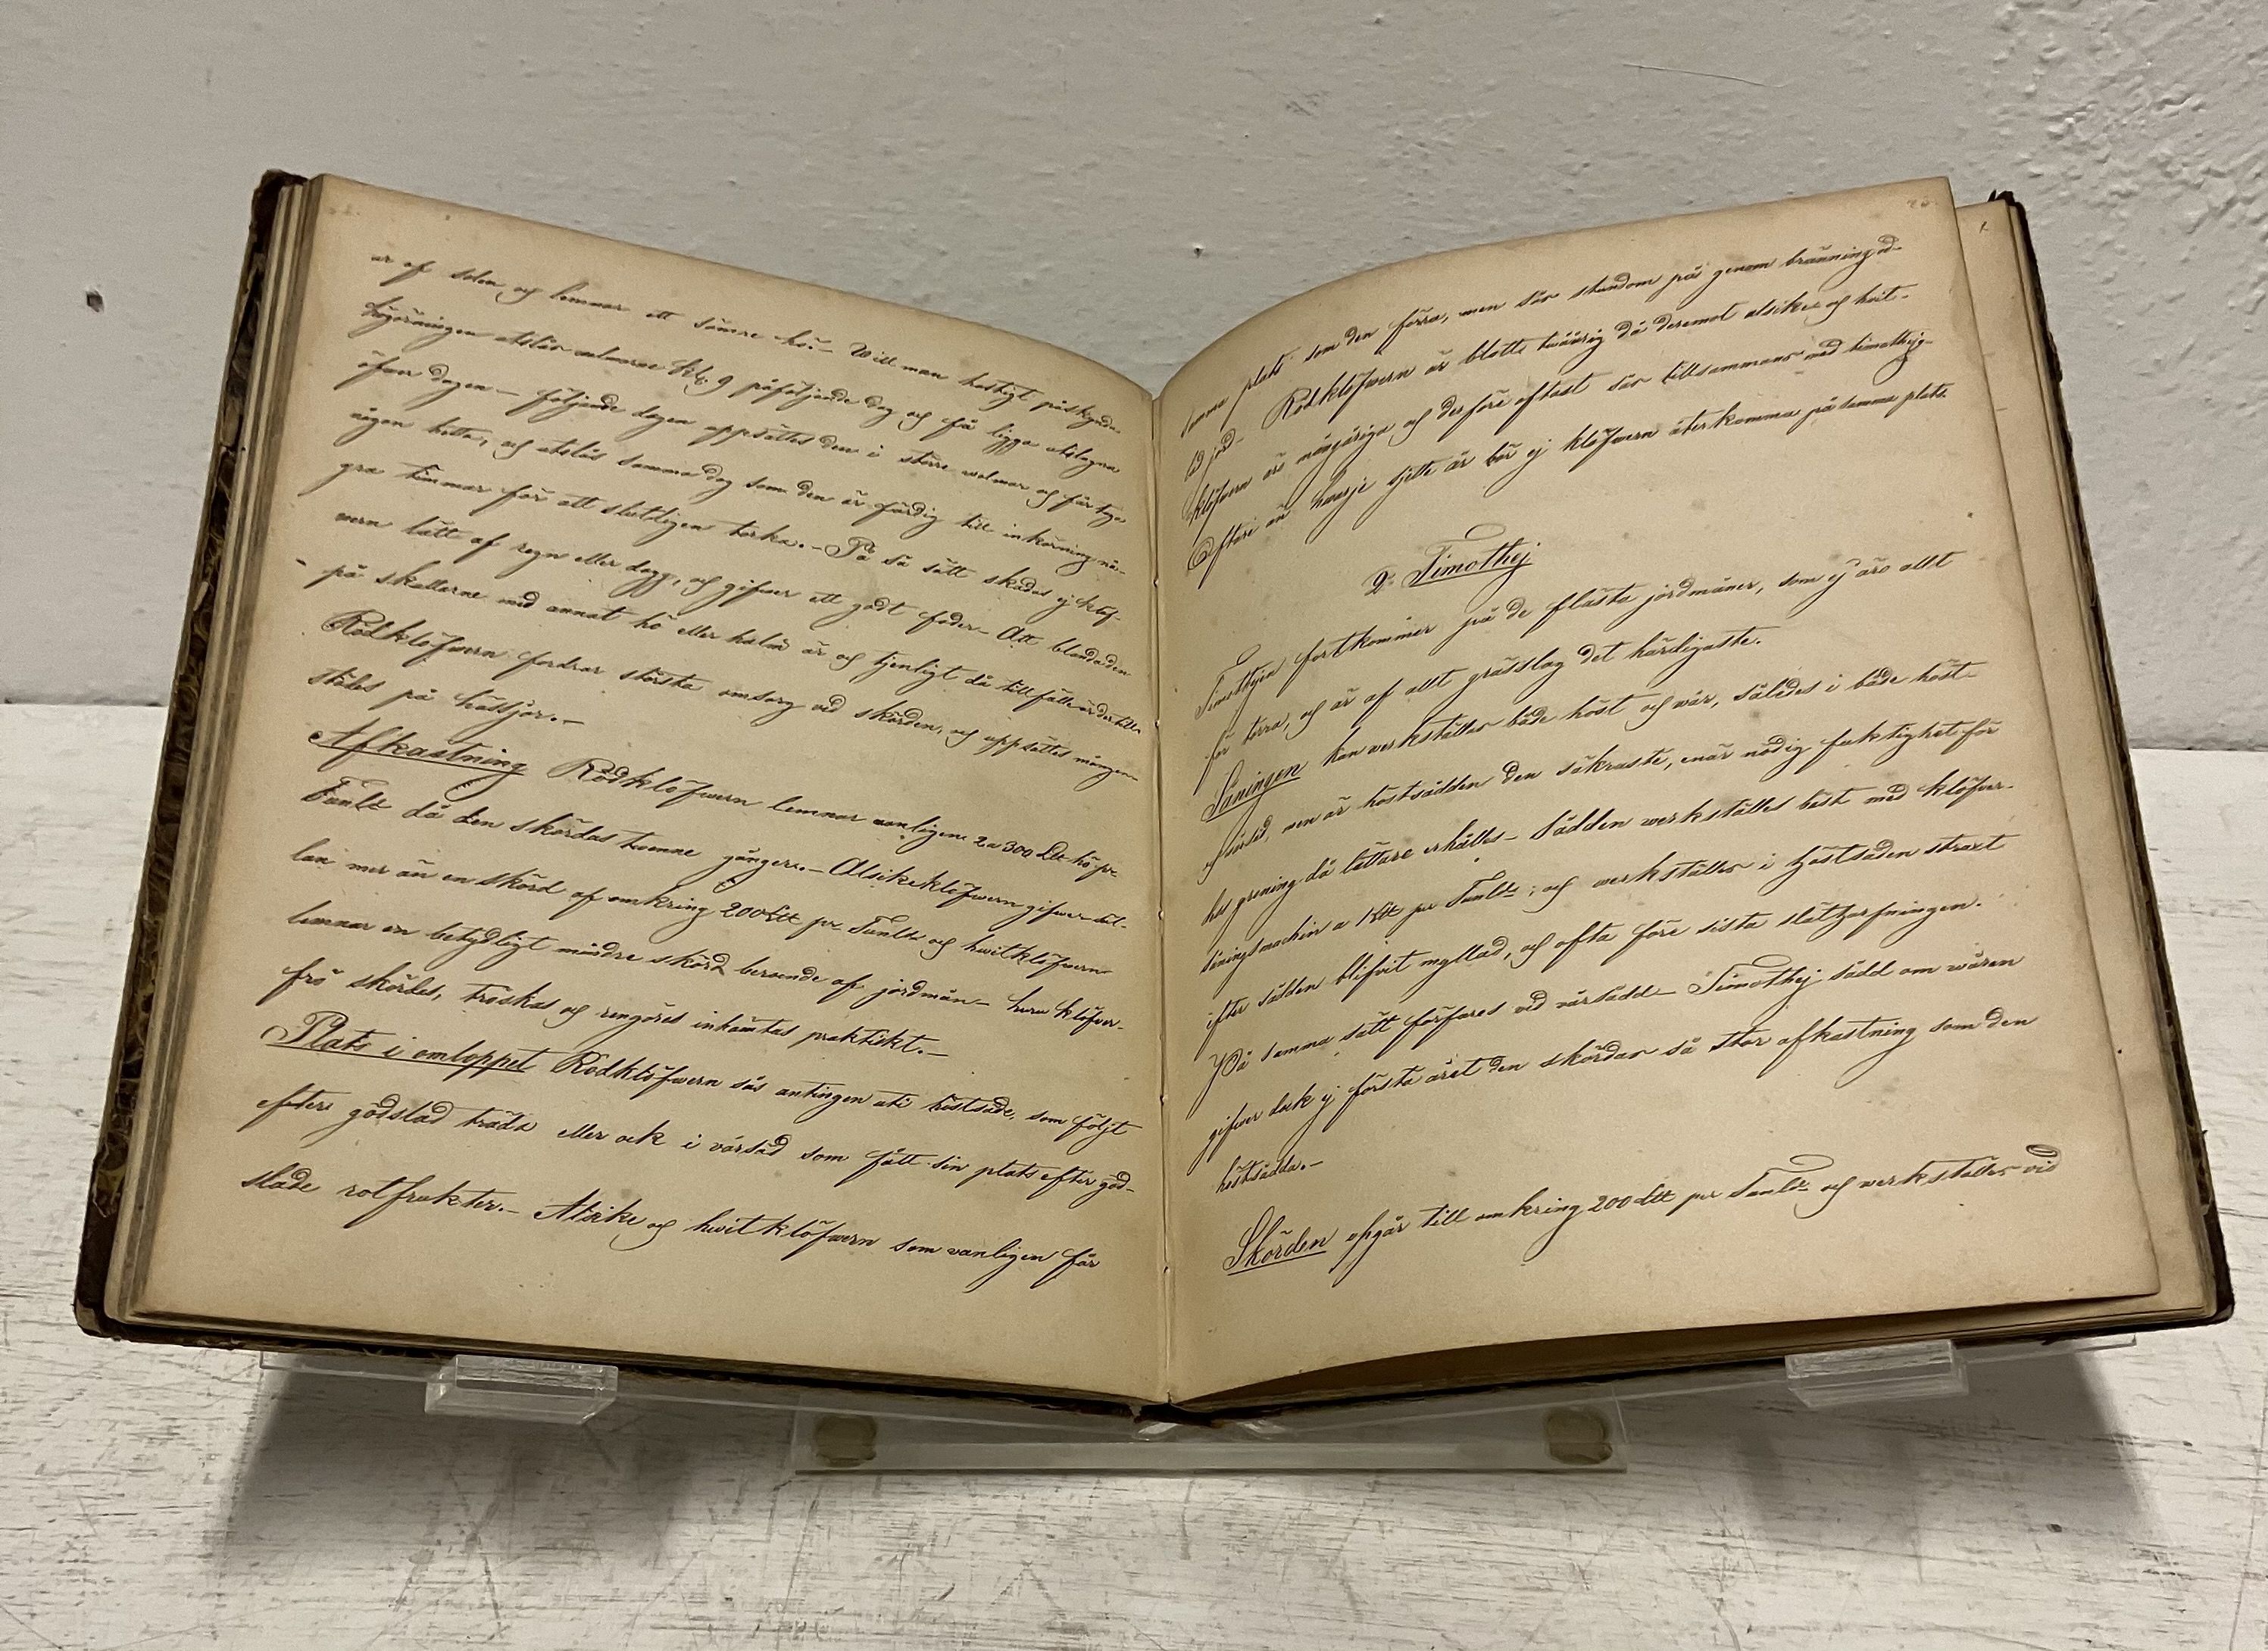 ar af solen och lemnar ett sämre hö.– Will man hastigt påskynda
högörningen utslås walmarne kl. 9 påföljande dag och få ligga utslagna
öfwer dagen – följande dagen uppsättes den i större walmar och får taga
någon hetta, och utslås samma dag som den är färdig till inkörning nå-
gra timmar för att slutligen torka.– På så sätt skadas ej klöf-
wern lätt af regn eller dagg, och gifwer ett godt foder – Att blanda den
på skullarne med annat hö eller halm är och tjenligt då tillfälle är dertill.
Rödklöfwern fordrar största omsorg vid skörden, och uppsättes mången-
städes på hässjor.–
Afkastning Rödklöfwern lemnar vanligen 2 a 300 Ltt hö pr
Tunld då den skördas twenne gånger.– Alsikeklöfwern gifwer säl-
lan mer än en skörd af omkring 200 Ltt pr Tunld och hwitklöfwern
lemnar en betydligt mindre skörd beroende af jordmån – huru klöfwer-
frö skördes, tröskas och rengöres inhämtas praktiskt.–
Plats i omloppet Rödklöfwern sås antingen uti höstsäde, som följt
efter gödslad träda eller ock i vårsäd som fått sin plats efter göd-
slade rotfrukter.– Alsike och hwitklöfwern som vanligen får
samma plats som den förra, men sås stundom på genom bränning od-
lad jord. Rödklöfwern är blott twåårig då deremot alsike och hwit-
klöfwern äro mångåriga och derföre oftast sås tillsammans med timothej –
Oftare än hwarje sjette år bör ej klöfwern återkomma på samma plats.
2. Timothej
Timothejen fortkommer på de flästa jordmåner, som ej äro allt
för torra, och är af allt grässlag det härdigaste.
Såningen kan werkställas både höst och wår, således i både höst-
och wårsäd, men är höstsådden den säkraste, enär nödig fuktighet för
hes groning då lättare erhålles – Sådden werkställes bäst med klöfwer-
såningsmachin a 1 Ltt per Tunld; och werkställes i höstsäden straxt
efter sådden blifvit myllad, och ofta före sista slätharfningen.
På samma sätt förfares vid vårsådd – Timothej sådd om wåren
gifwer dock ej första året den skördas så stor afkastning som den
höstsådda.–
Skörden uppgår till omkring 200 Ltt per Tunld och werkställes vid